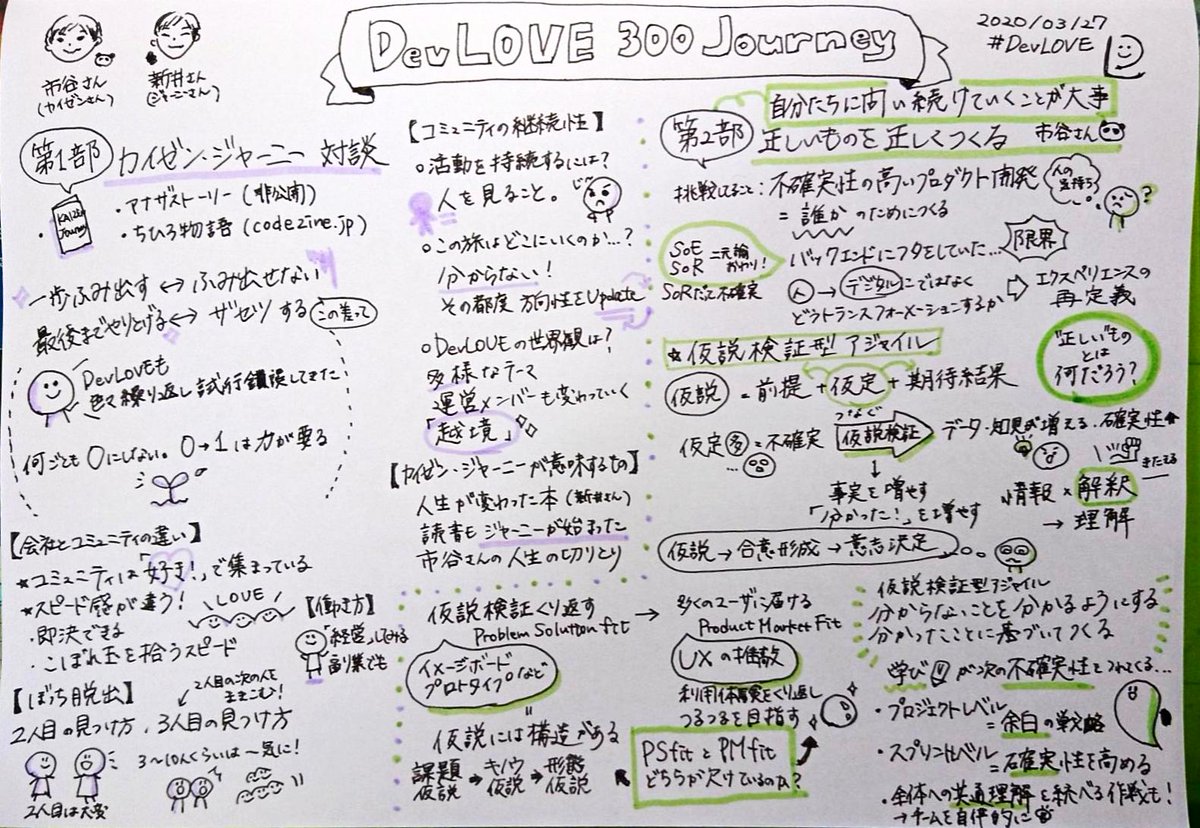 DevLOVE 300 Journey
2020/03/27
#DevLOVE
市谷さん
(カイゼンさん)
新井さん
(ジャーニーさん)
第1部
カイゼン・ジャーニー 対談
KAIZEN
Journey
・アナザストーリー (非公開)
・ちひろ物語 (codezine.jp)
一歩ふみ出す ↔ ふみ出せない
最後までやりとげる ↔ ザセツする
この差って
DevLOVEも
色々繰り返し試行錯誤してきた
何ごとも0にしない。0→1は力が要る
【会社とコミュニティの違い】
★コミュニティは「好き!」で集まっている
★スピード感が違う!
・即決できる
・こぼれ玉を拾うスピード
LOVE
【働き方】
「経営」してみる
副業でも
【ぼっち脱出】
2人目の次の人を
2人目の見つけ方、3人目の見つけ方
3〜10人くらいは一気に!
2人目は大変
【コミュニティの継続性】
○活動を持続するには?
人を見ること。
○この旅はどこにいくのか…?
分からない!
その都度 方向性をUpdate
○DevLOVEの世界観は?
多様なテーマ
運営メンバーも変わっていく
「越境」
【カイゼン・ジャーニーが意味するもの】
人生が変わった本 (新井さん)
読者もジャーニーが始まった
市谷さんの人生の切りとり
第2部
自分たちに問い続けていくことが大事
正しいものを正しくつくる
市谷さん
挑戦してること:不確実性の高いプロダクト開発
=誰かのためにつくる
人の気持ち
?
SoE
SoR
二元論
おわり!
SoRだって不確実
バックエンドにフタをしていた…
限界
人→デジタルにではなく
どうトランスフォーメーションするか
⇨ エクスペリエンスの
再定義
★仮説検証型アジャイル
"正しい"もの
とは
何だろう?
仮説 = 前提 + 仮定 + 期待結果
仮定 多 = 不確実…
つなぐ
仮説検証
データ・知見が増える・確実性↑
↓
事実を増やす
「分かった!」を増やす
情報 × 解釈
きたえる
→ 理解
仮説 → 合意形成 → 意志決定
仮説検証くり返す
Problem Solution fit
→ 多くのユーザに届ける
Product Market Fit
イメージボード
プロトタイプなど
UXの推敲
利用体験をくり返し
つるつるを目指す
仮説には構造がある
課題仮説 → キノウ仮説 → 形態仮説
PSfitとPMfit
どちらが欠けているのか?
仮説検証型アジャイル
分からないことを分かるようにする
分かったことに基づいてつくる
学びが次の不確実性をつれてくる…
・プロジェクトレベル
=余白の戦略
・スプリントレベル
=確実性を高める
・全体への共通理解を統べる作戦も!
→チームを自律的に